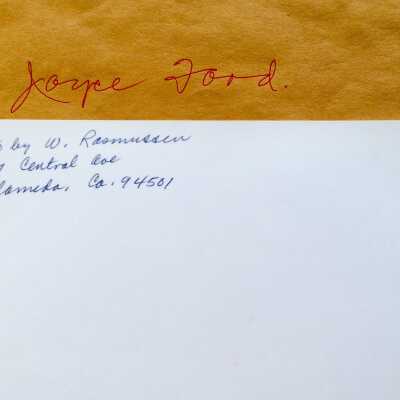 Joyce Food.
by W. Rasmussen
Central Ave
Ca. 94501